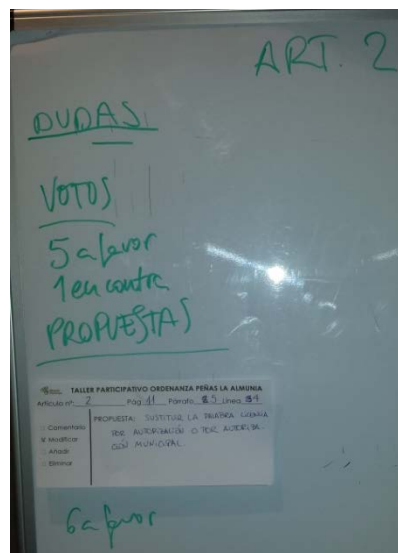 ART. 2
DUDAS
VOTOS
5 a favor
1 en contra
PROPUESTAS
TALLER PARTICIPATIVO ORDENANZA PEÑAS LA ALMUNIA
Artículo nº: 2 Pág 11 Párrafo 5 Línea 4
Comentario
Modificar
Añadir
Eliminar
PROPUESTA: SUSTITUIR LA PALABRA LICENCIA
POR AUTORIZACIÓN O POR AUTORIZA-
CIÓN MUNICIPAL.
6 a favor